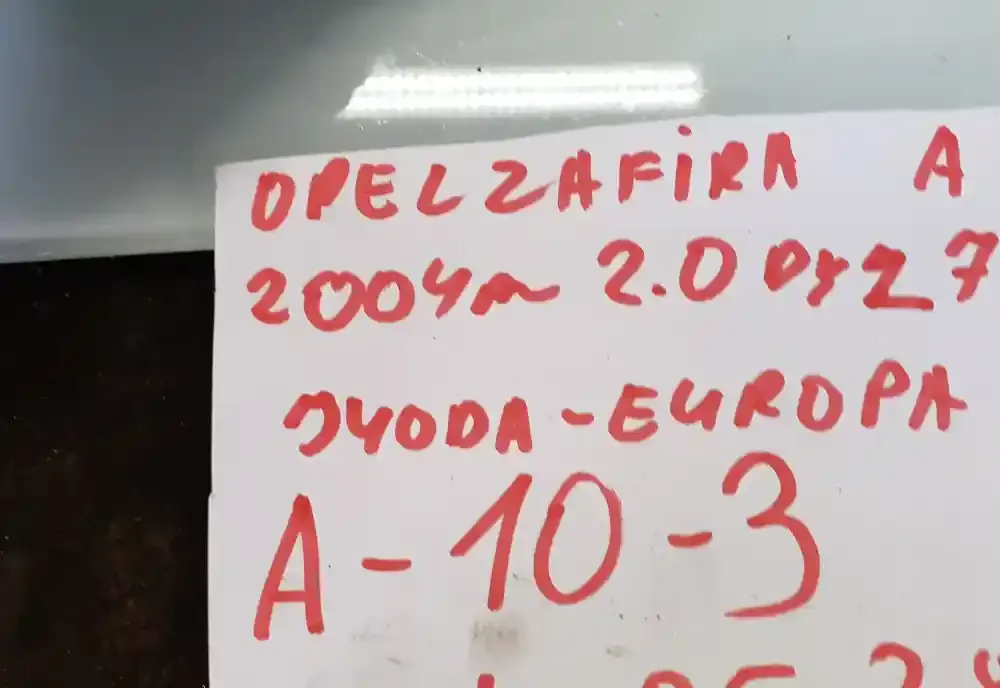 OPEL ZAFIRA A
2004m 2.0 Dyz 7
EUROPA
A-10-3